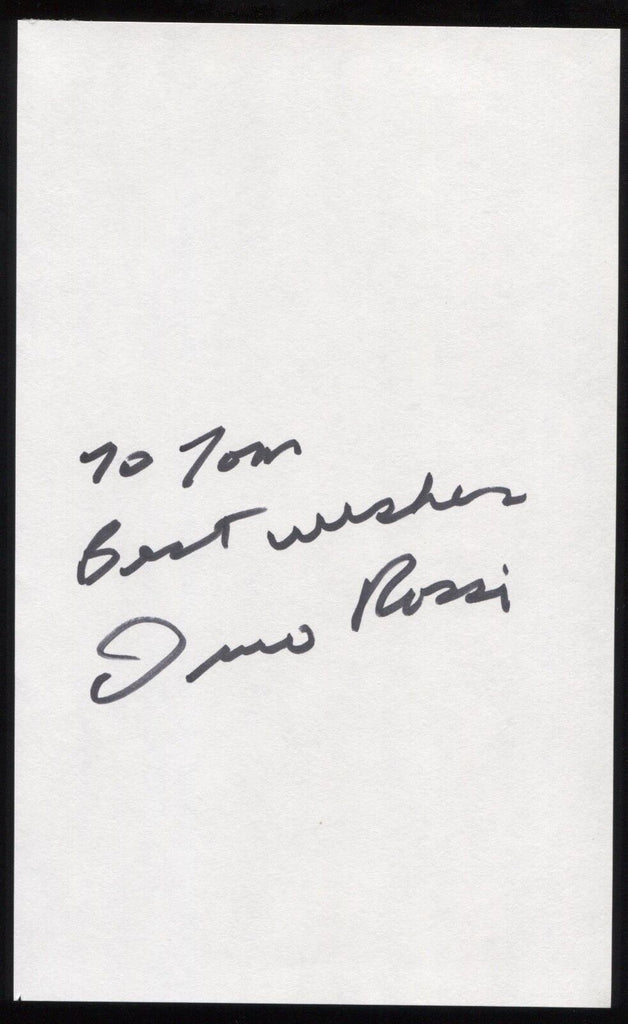 To Tom
Best wishes
Dino Rossi